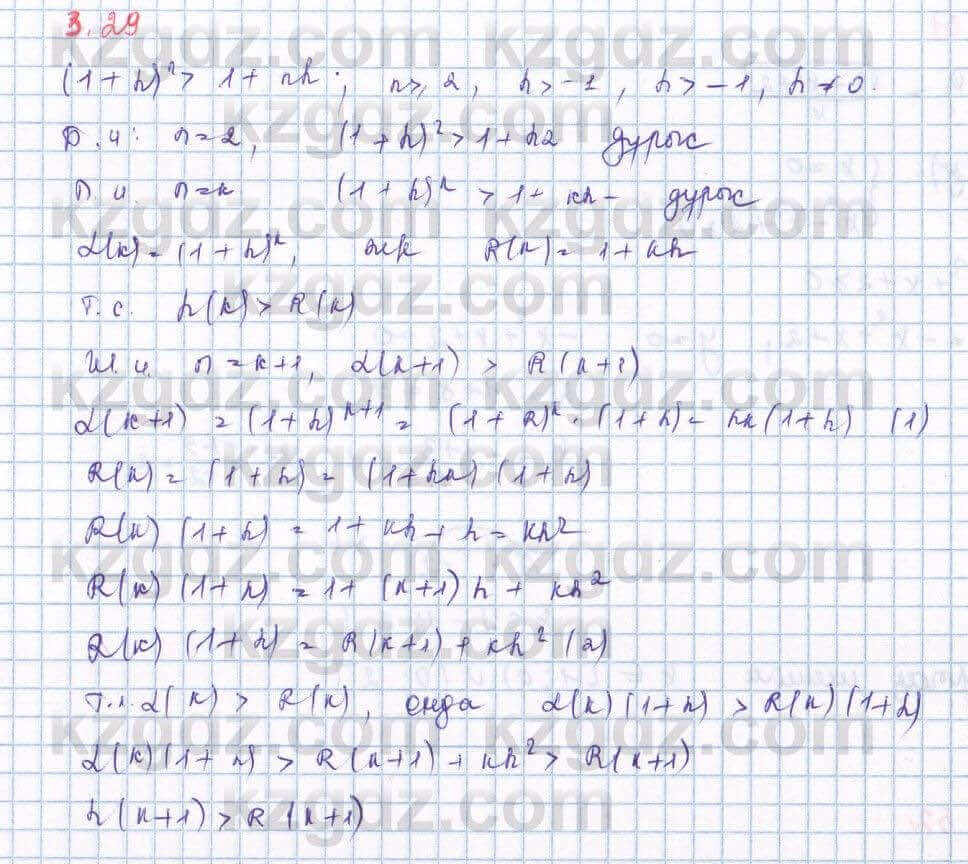 3.29
(1+h)ⁿ > 1+nh; n≥2, h>-1, h>-1, h≠0.
D.и: n=2, (1+h)²>1+h2 дұрыс
П.и. n=k (1+h)ᵏ > 1+kh - дұрыс
L(k)=(1+h)ᵏ, R(k)=1+kh
т.с. L(k)>R(k)
Ш.и. n=k+1, L(k+1) > R(k+1)
L(k+1) = (1+h)ᵏ⁺¹ = (1+h)ᵏ·(1+h)= hk(1+h) (1)
R(k) = (1+h) = (1+hk) (1+h)
R(k) (1+h) = 1+kh+h=kh²
R(k) (1+h) = 1+(k+1)h+kh²
R(k) (1+h) = R(k+1)+kh² (2)
L(k) > R(k), онда L(k)(1+h) > R(k)(1+h)
L(k)(1+h) > R(k+1)+kh² > R(k+1)
L(k+1)>R(k+1)
kzgdz.com